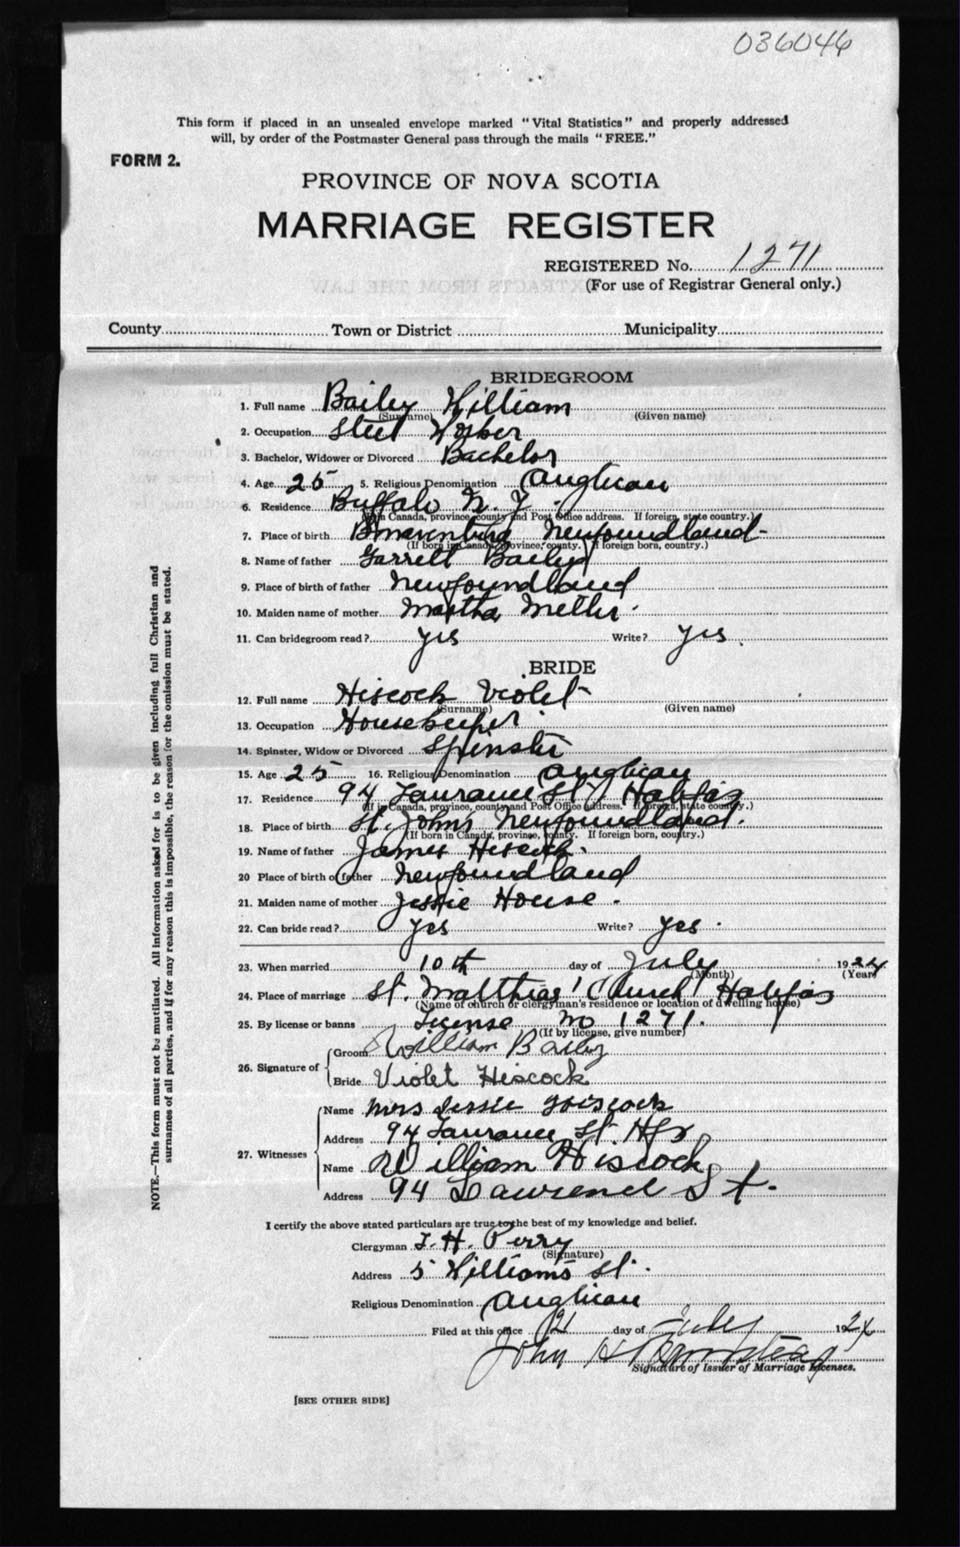 036046
This form if placed in an unsealed envelope marked "Vital Statistics" and properly addressed
will, by order of the Postmaster General pass through the mails "FREE."
FORM 2.
PROVINCE OF NOVA SCOTIA
MARRIAGE REGISTER
REGISTERED No. 1271
(For use of Registrar General only.)
County Town or District Municipality
BRIDEGROOM
1. Full name Bailey William
(Surname) (Given name)
2. Occupation Steel Worker
3. Bachelor, Widower or Divorced Bachelor
4. Age 25 5. Religious Denomination Anglican
6. Residence Buffalo N. Y.
(If in Canada, province, county and Post Office address. If foreign, state country.)
7. Place of birth Newfoundland
(If born in Canada, province, county. If foreign born, country.)
8. Name of father Garrett Bailey
9. Place of birth of father Newfoundland
10. Maiden name of mother Martha
11. Can bridegroom read? yes Write? yes.
BRIDE
12. Full name Hiscock Violet
(Surname) (Given name)
13. Occupation Housekeeper
14. Spinster, Widow or Divorced Spinster
15. Age 25 16. Religious Denomination Anglican
17. Residence 94 Laurance St. Halifax
(If in Canada, province, county and Post Office address. If foreign, state country.)
18. Place of birth St. John's Newfoundland.
(If born in Canada, province, county. If foreign born, country.)
19. Name of father James Hiscock.
20 Place of birth of father Newfoundland
21. Maiden name of mother Jessie House.
22. Can bride read? yes Write? yes.
23. When married 10th day of July 1924
(Month) (Year)
24. Place of marriage St. Matthias' Church Halifax
(Name of church or clergyman's residence or location of dwelling house)
25. By license or banns License No 1271.
(If by license, give number)
26. Signature of Groom William Bailey
Bride Violet Hiscock
27. Witnesses Name Mrs Jessie Hiscock
Address 94 Laurance St. Hfx
Name William Hiscock
Address 94 Lawrence St.
I certify the above stated particulars are true to the best of my knowledge and belief.
Clergyman T. H. Perry
(Signature)
Address 5 Williams St.
Religious Denomination Anglican
Filed at this office 21 day of July 1924
John H
Signature of Issuer of Marriage Licenses.
[SEE OTHER SIDE]
NOTE.—This form must not be mutilated. All information asked for is to be given including full Christian and
surnames of all parties, and if for any reason this is impossible, the reason for the omission must be stated.